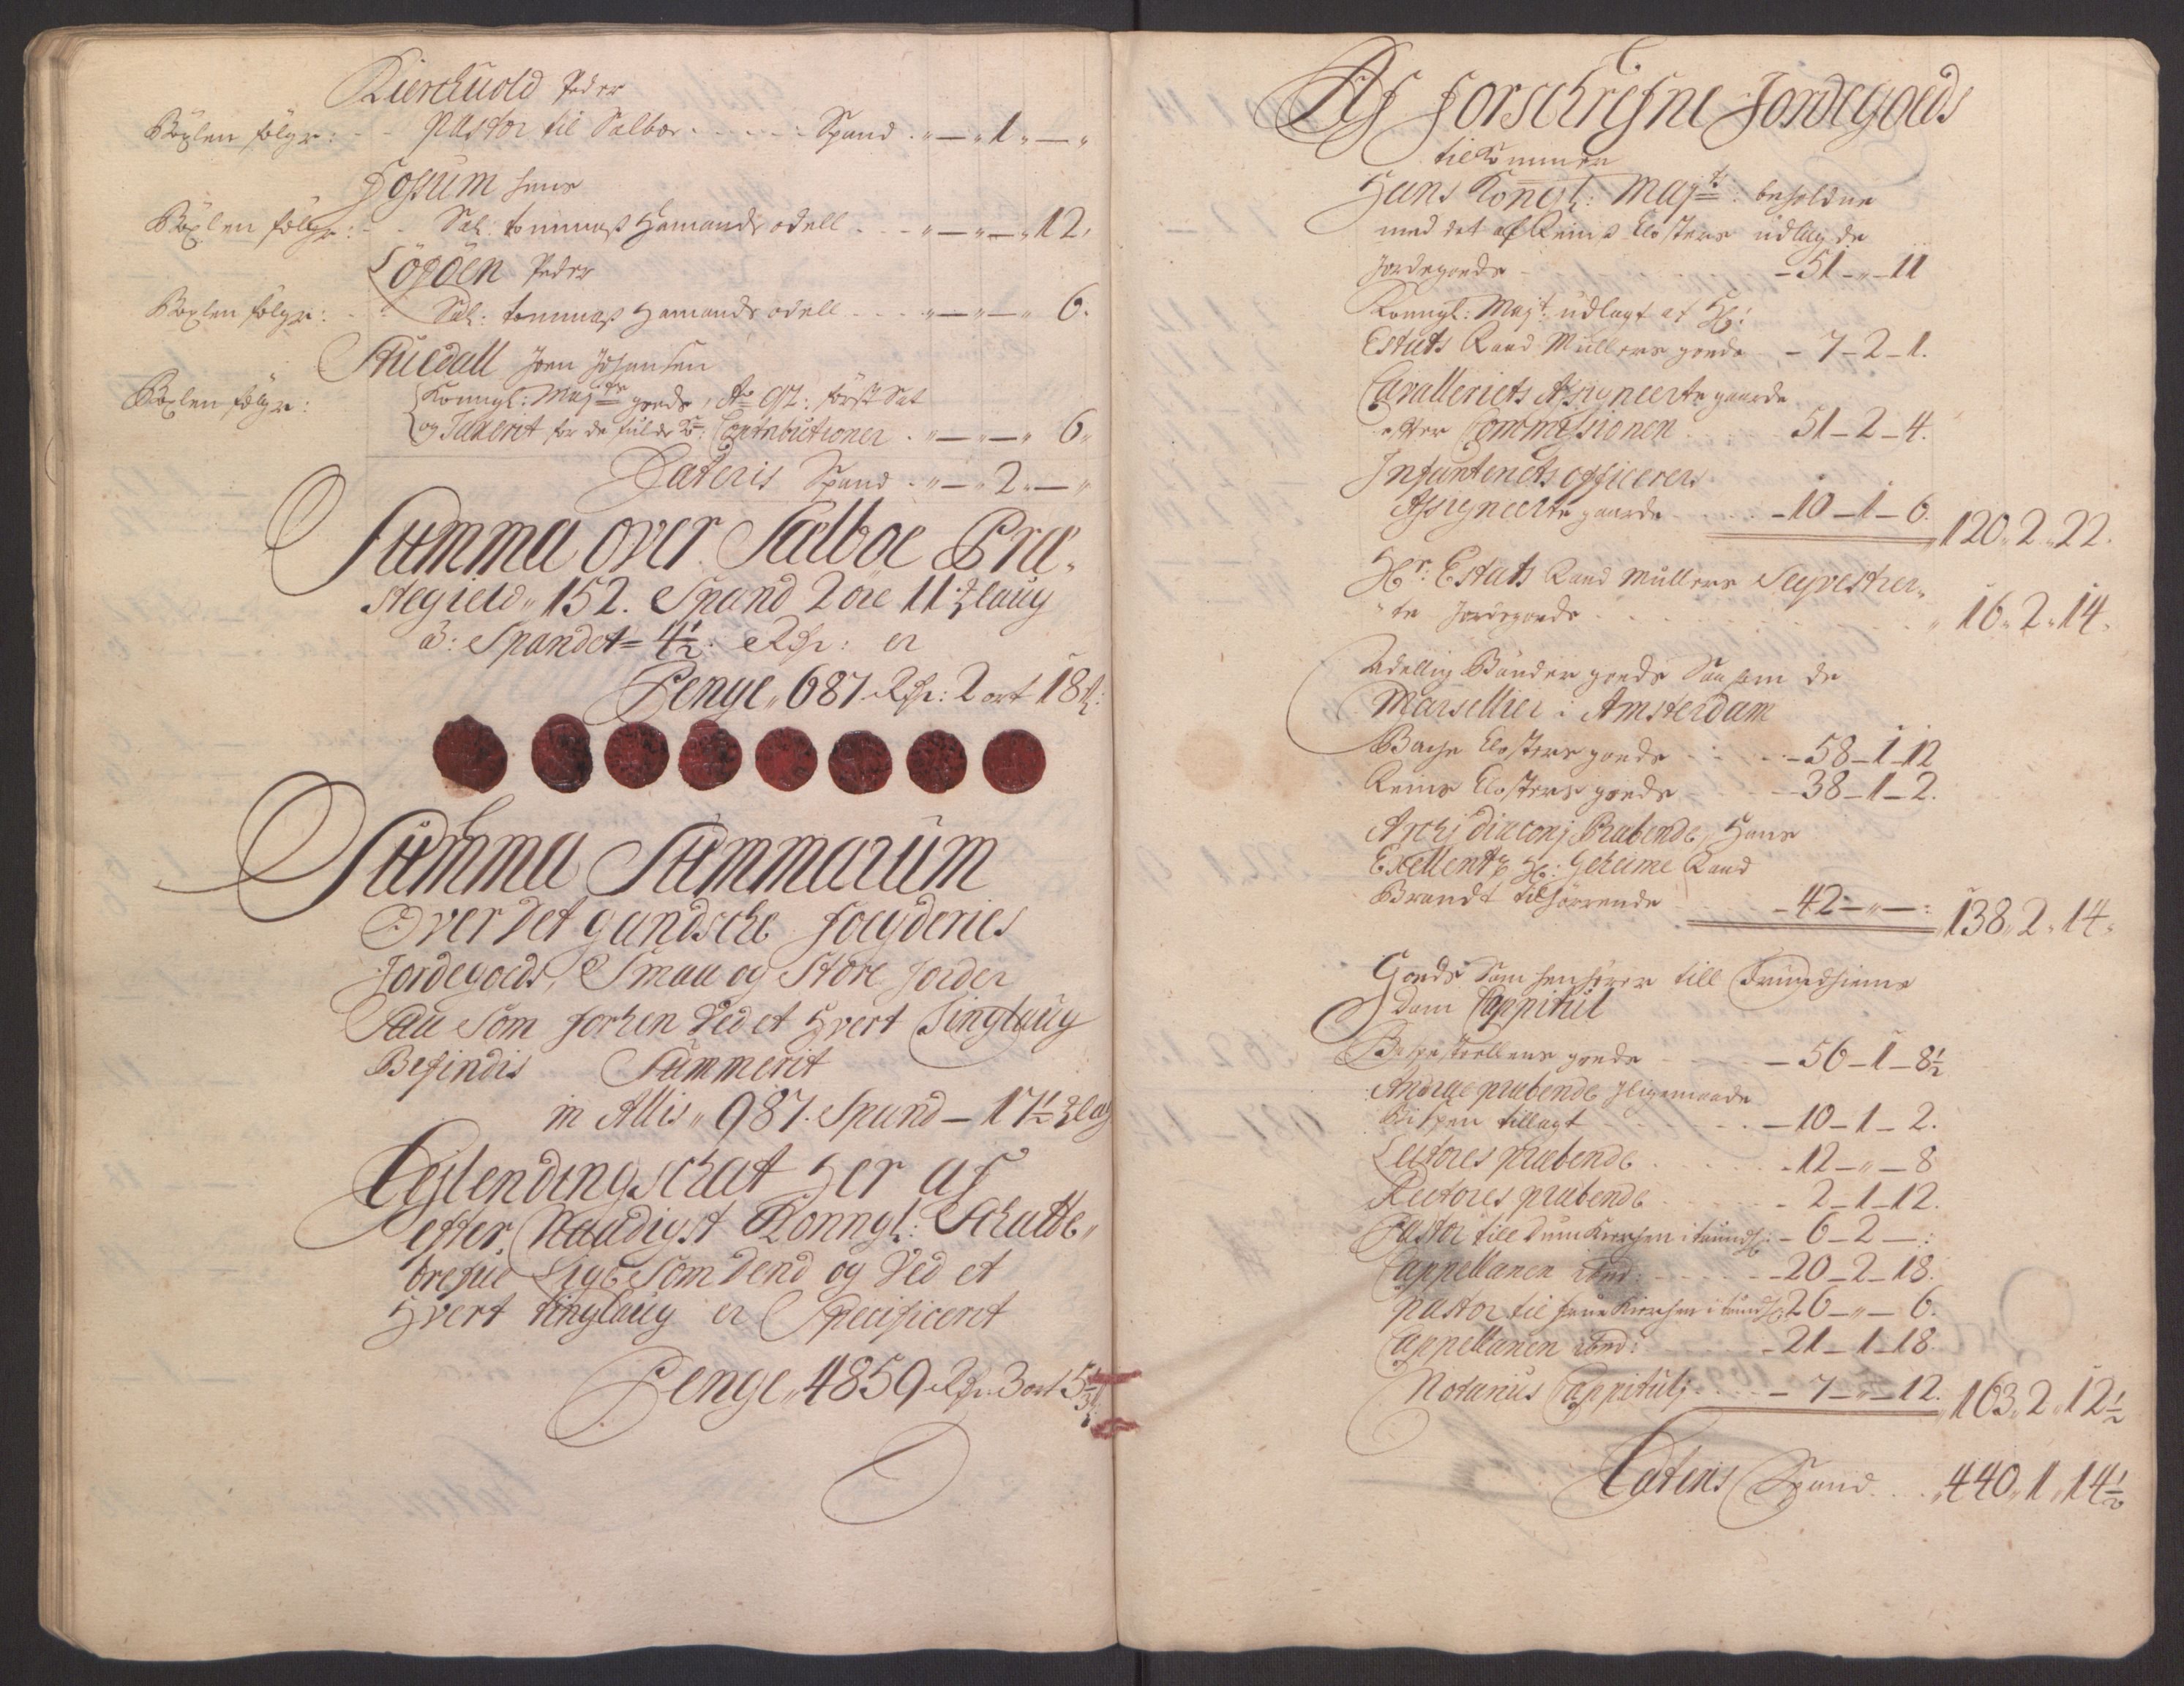 Kierchuold Peder
Böxlen fölger: - - Pastor til Selboe . . . . . Spand . „ — „ 1 „ — „
Hossum Hans
Böxlen fölger: - - Sal: tommas Hammands odell . . . „ — „ — „ 12.
Lögden Peder
Böxlen fölger: - - Sal: tommas Hammands odell . . . . „ — „ — „ 6.
Stuedall Joen Johansen
Böxlen fölger: Konngl: Maj^ts goeds, A^o 92: först Sat
og Taxerit for de fulde Contributioner . „ — „ — „ 6„
Lateris Spand . „ — „ 2 „ — „
Summa over Sælboe Præ„
stegield„ 152. Spand 2 öre 11½ laug
a: Spandet = 4½: Rdr: er
Penge„ 687 Rdr: 2 ort 18 s:
Summa Summarum
Over det gandsche fogderies
Jordegoeds, Smaa og Store Jorder
Saa Som forhen Ved et Hvert Tinglaug
Befindis Summerit
in Allis„ 987. Spand — 17½ laug
Leylendingschat Her af
efter Naadigst Konngl: Schatte„
brefue Lige Som dend og Ved et
Hvert tinglaug er Specificerit
Penge„ 4859 Rdr 3 ort 5
Af forschrefne Jordegoeds
tilkommer
Hans Kongl: Maj^ts: beholdne
med det af Reins Closters udlagde
Jordegoeds - - 51 - „ - 11
Konngl: Maj^t: udlagt af Hr:
Estats Raad Mullers goeds - 7 - 2 - 1.
Cavalleriets Assigneerte gaarde
efter Commissionen . . . 51 - 2 - 4.
Infanteriets officerers
Assigneerte gaarde . . . - 10 - 1 - 6. „120„ 2„ 22.
Hr: Estats Raad Mullers Seqvestrer„
„te Jordegoeds . . . . . . „ 16„ 2„ 14.
Adellig Bönder goeds Saasom de
Marsellier i Amsterdam
Bache Closters goeds - - - 58 - 1 - 12
Reins Closters goeds - - - 38 - 1 - 2.
Archi diaconi Præbende, Hans
Exellentz Hr: Geheime Raad
Brandt tilhörende - 42 - „ - : „138„ 2„ 14„
Goeds Som henhörer till Trundhiems
Dom Cappitul
Bispestoellens goeds - - - 56 - 1 - 8½
Andræ præbende ligemaade
Bispen tillagt - - - 10 - 1 - 2.
Lectores præbende . . . - 12 - „ - 8
Rectores præbende . . . - 2 - 1 - 12.
Pastor till Dumkierchen i trundh: - 6 - 2 - :
Cappellanen ibid: - - - - 20 - 2 - 18.
Pastor til frue Kierchen i trundh: 26 - „ - 6.
Cappellanen ibid: . . . - 21 - 1 - 18.
Notarius Cappituli . . . - 7 - „ - 12. „163„ 2„ 12½
Lateris Spand . . . „440„ 1„ 14½